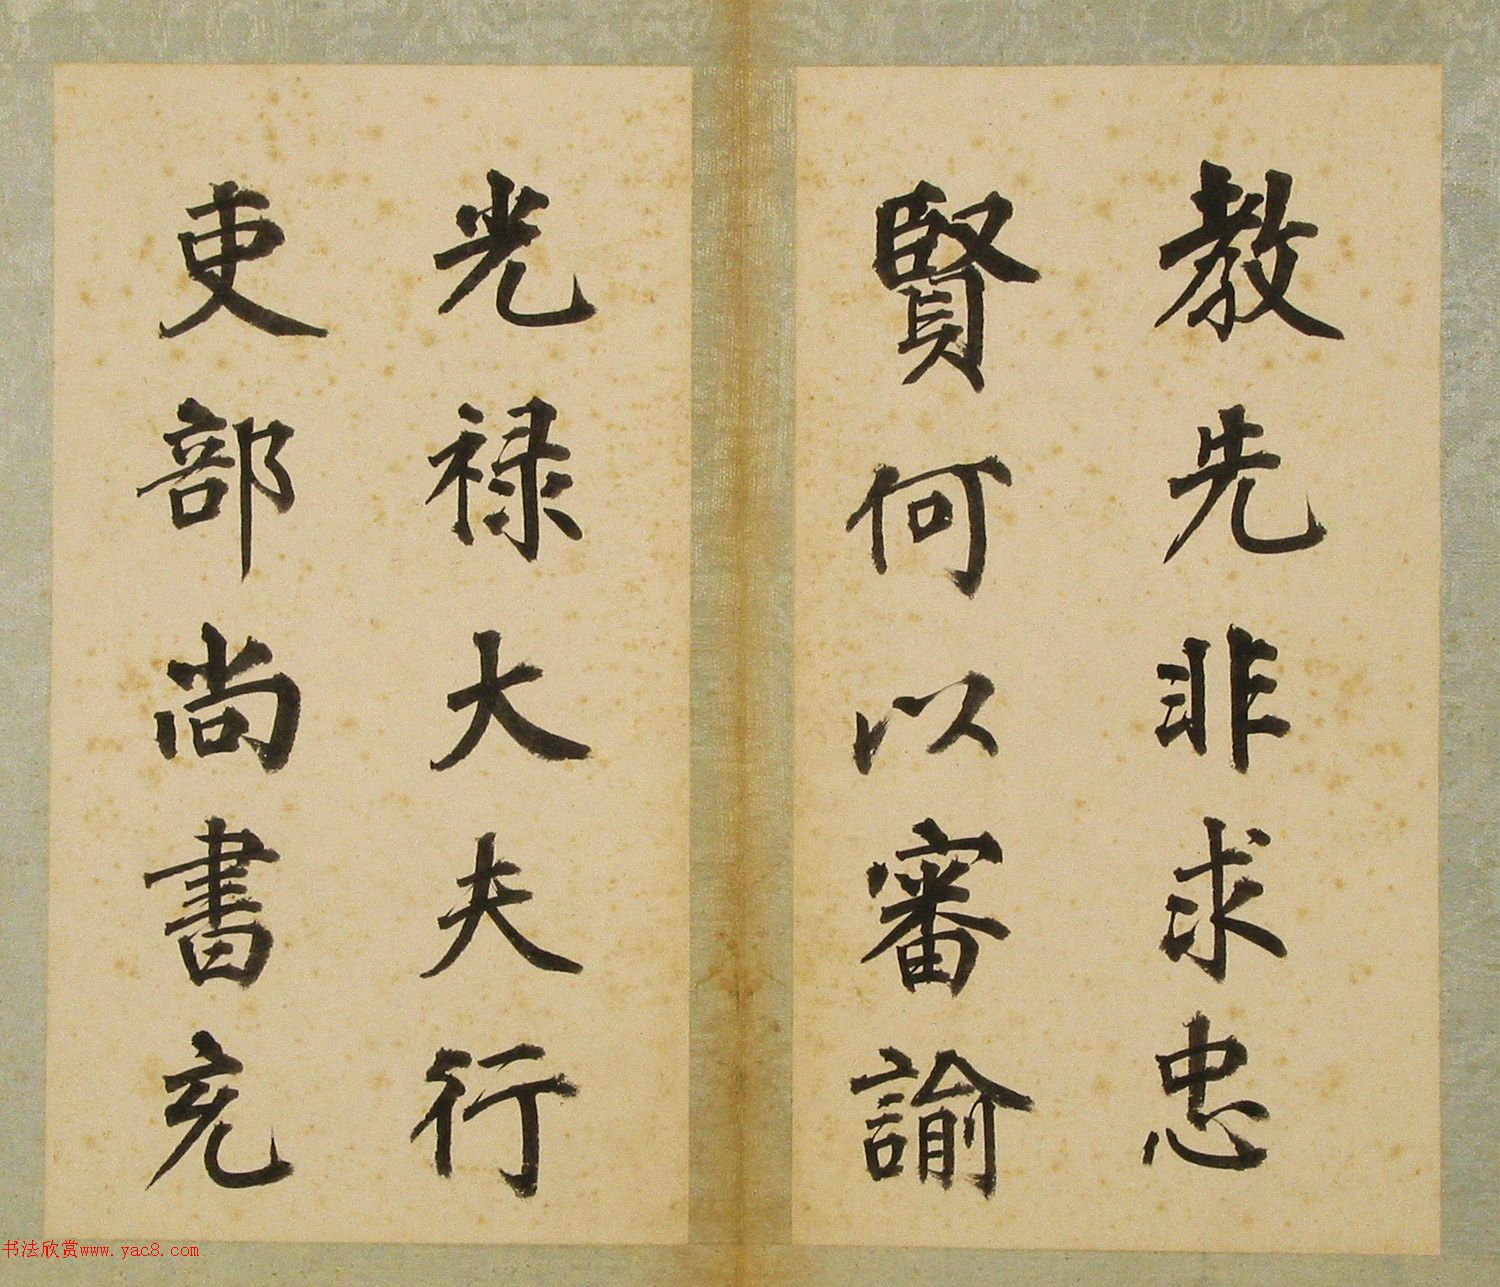 教先非求忠
賢何以審諭
光禄大夫行
吏部尚書充
书法欣赏www.yac8.com